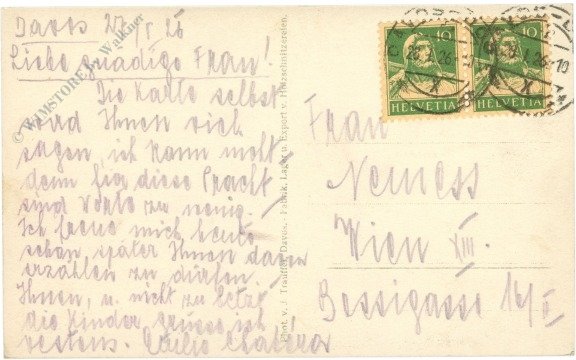 Davos 27/I 26
Liebe gnädige Frau!
Die Karte selbst
wird Ihnen viel
sagen, ich kann nicht
denn für diese Pracht
sind Worte zu wenig.
Ich freue mich heute
schon, später Ihnen davon
erzählen zu dürfen.
Ihnen, u. nicht zu letzt
die Kinder, grüsse ich
bestens.
Phot. v. J. Davos. - Fabrik, Lager u. Export v. Holzschnitzereien.
10 10
HELVETIA HELVETIA
Frau
Nemess
Wien XIII.
Bossigasse 14/I
© WIMSTORE by Walknet